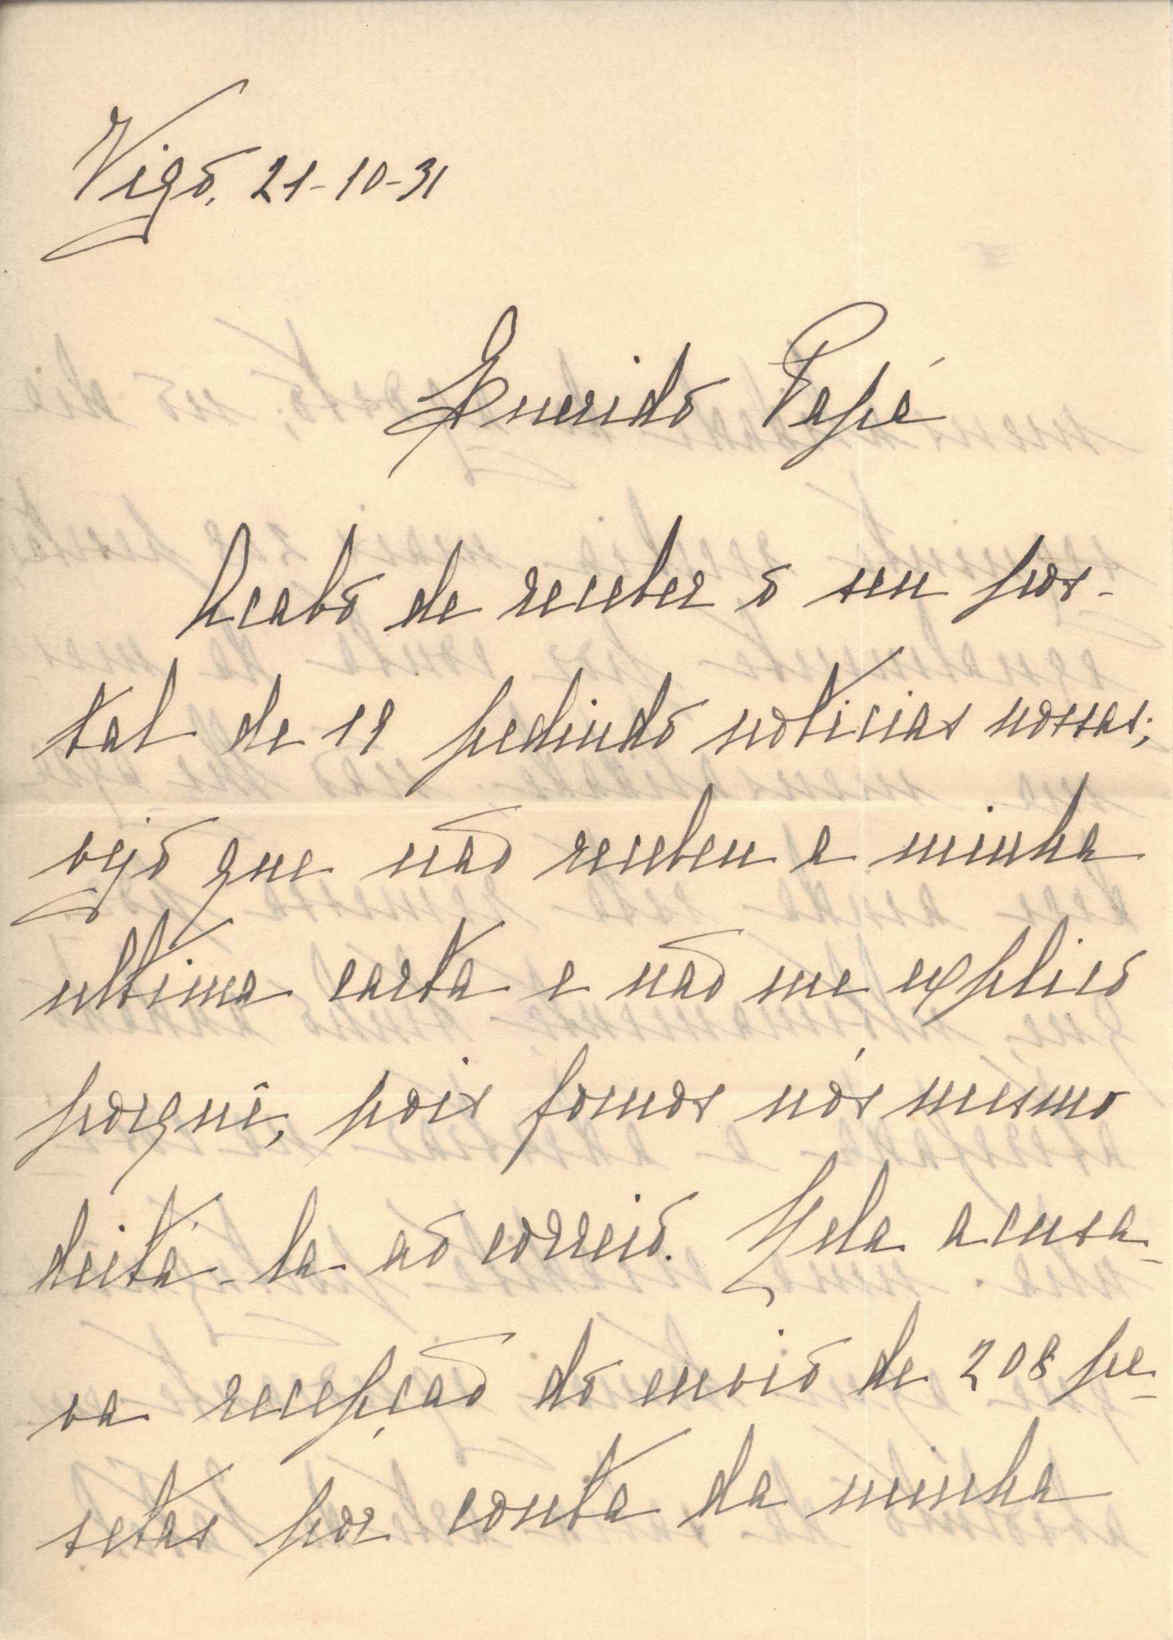 Vigo, 21-10-31
Querido Papá
Acabo de receber o seu pos-
tal de 19 pedindo noticias nossas;
vejo que não recebeu a minha
ultima carta e não me explico
porquê, pois fomos nós mesmo
deitá-la ao correio. Nela acusa-
va recepção do envio de 208 pe-
setas por conta da minha